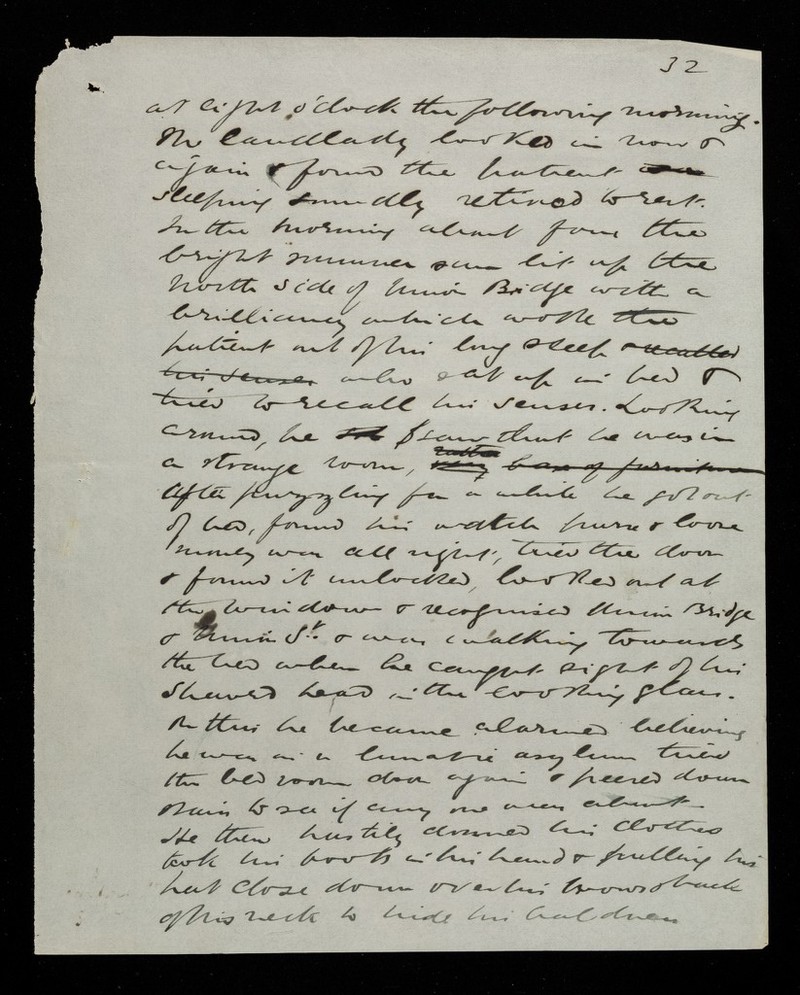 32
at eight o'clock the following morning.
The landlady looked in now &
again & found the patient was
sleeping soundly retired to rest.
In the morning about four the
bright summer sun lit up the
North side of Union Bridge with a
brilliancy which woke the
patient out of his long sleep & recalled
his senses who sat up in bed &
tried to recall his senses. Looking
around, he saw that he was in
a strange room, rather bare of furniture
After puzzling for a while he got out
of bed, found his watch purse & loose
money was all right, tried the door
& found it unlocked, looked out at
the window & recognised Union Bridge
& Union St. & was walking towards
the bed when he caught sight of his
shaved head in the looking glass.
At this he became alarmed believing
he was in a lunatic asylum tried
the bed room door again & peered down
stairs to see if any one was about.
He then hastily donned his clothes
took his boots in his hand & pulling his
hat close down over his brows & back
of his neck to hide his baldness